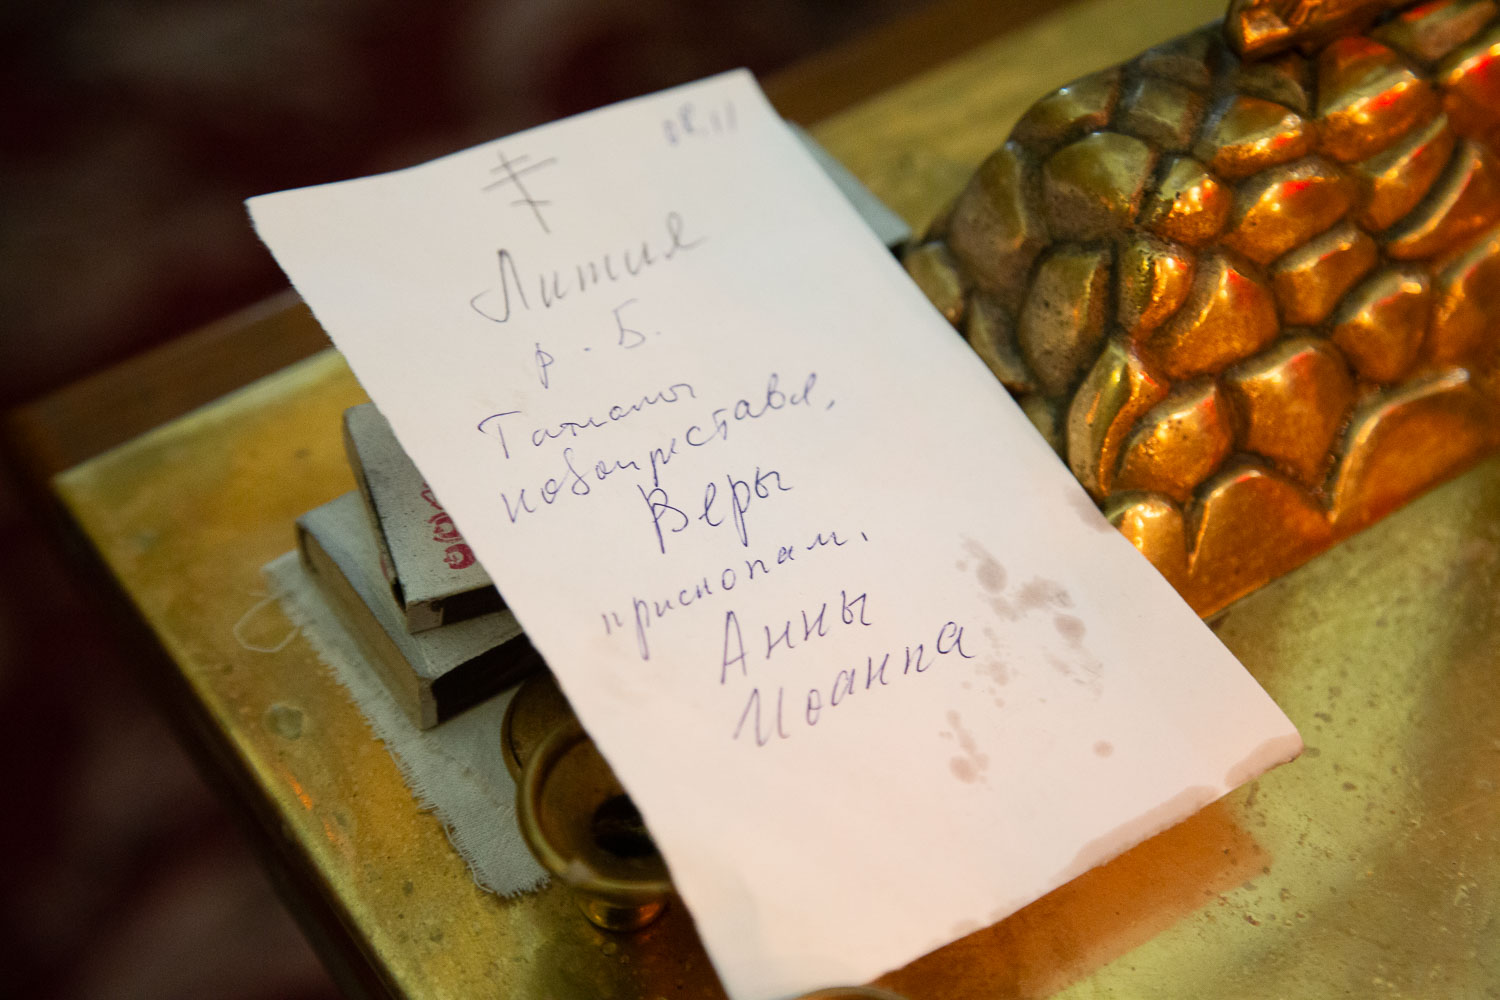 Лития
р. Б.
Татианы
новопреставл.
Веры
приснопам.
Анны
Иоанна